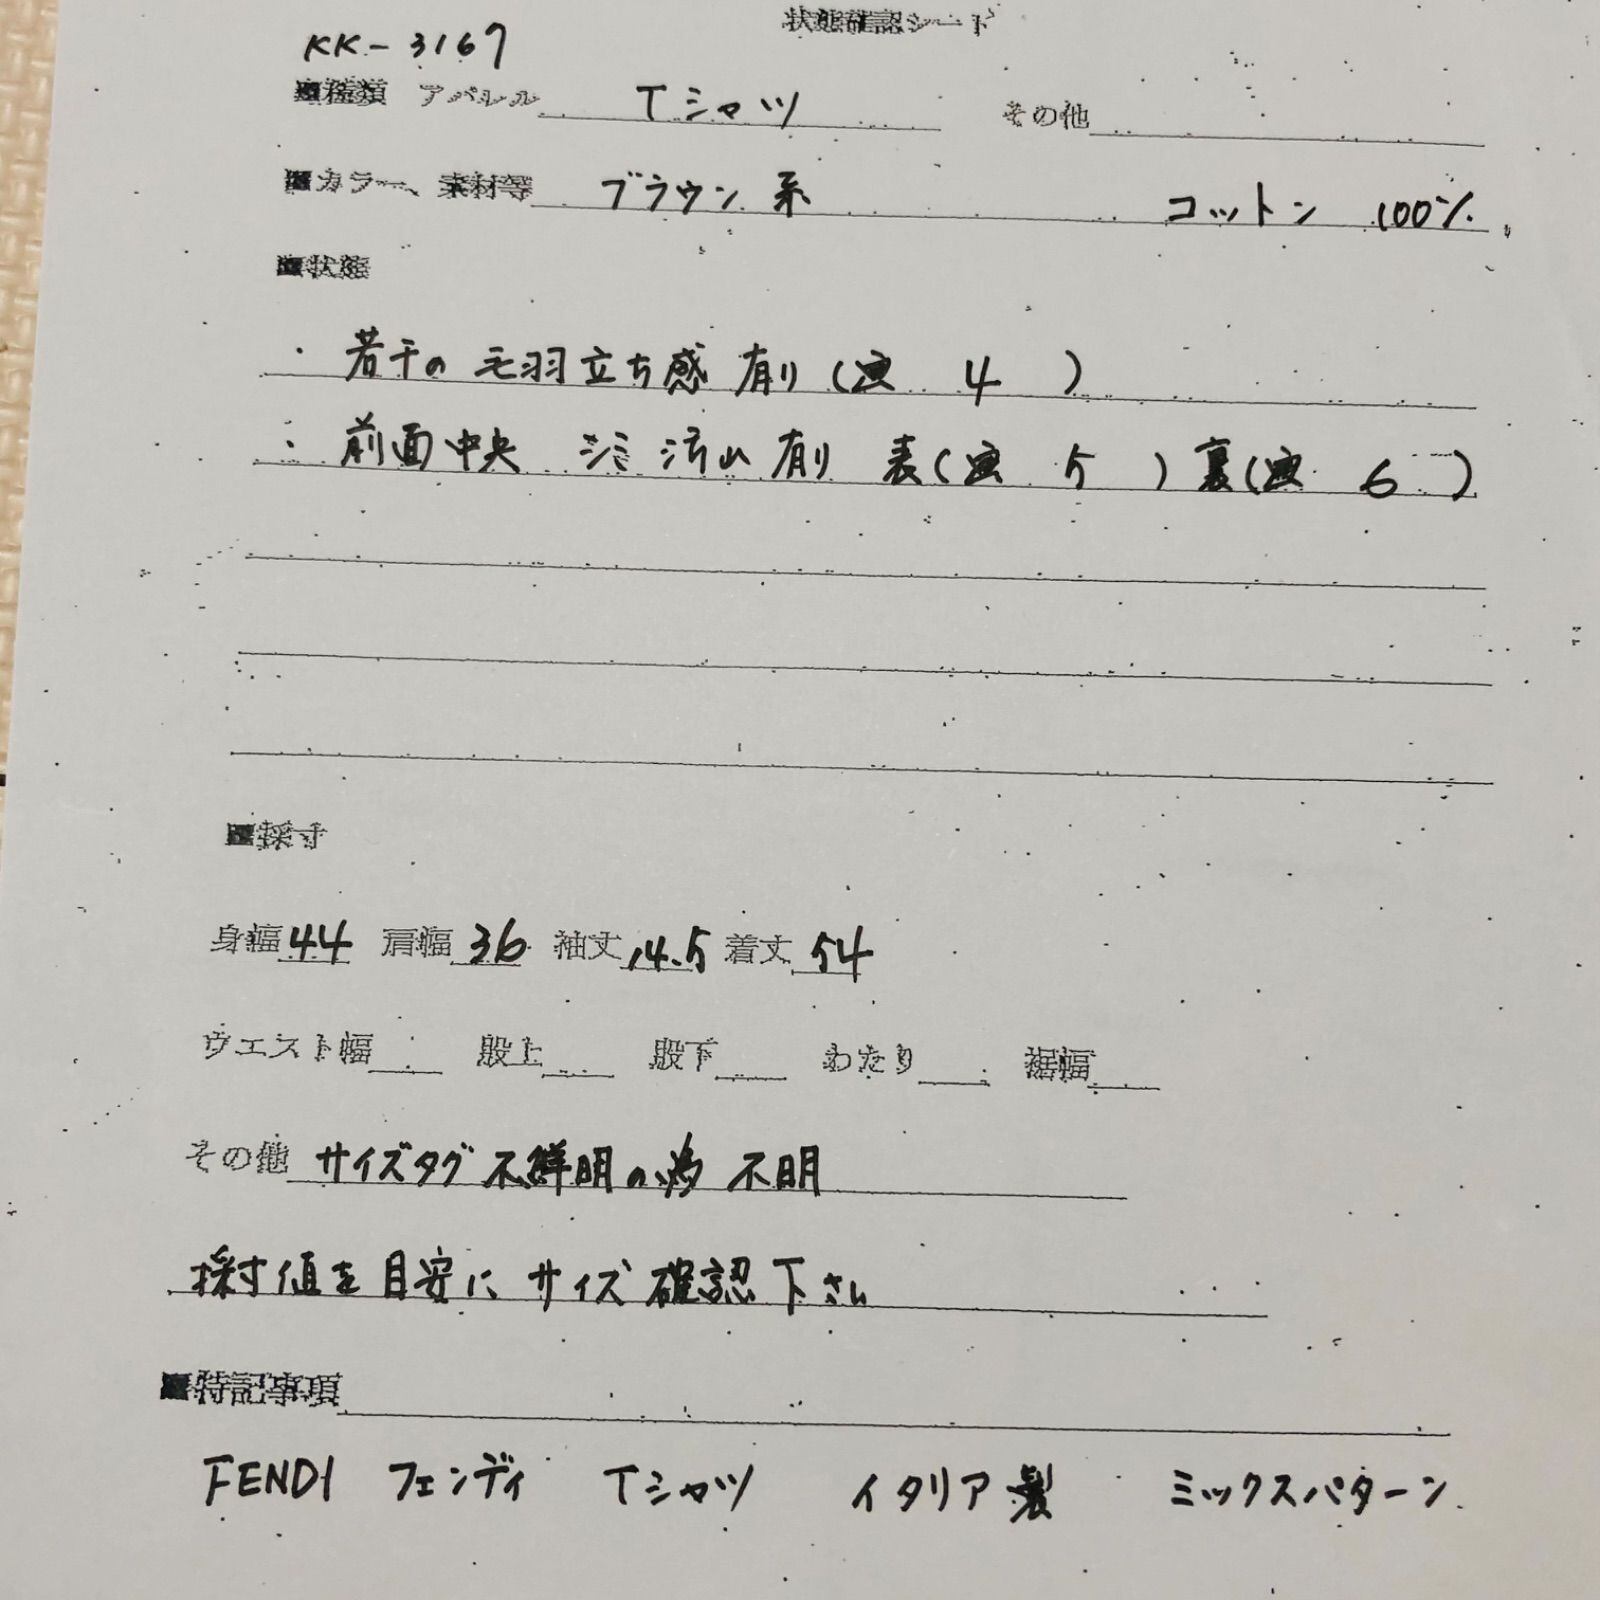 状態確認シート
KK-3167
■種類 アパレル Tシャツ その他
■カラー、素材等 ブラウン系 コットン 100%
■状態
・若干の毛羽立ち感 有り(画 4 )
・前面中央 シミ汚れ有り 表(画 5 )裏(画 6 )
■採寸
身幅44 肩幅36 袖丈14.5 着丈54
ウエスト幅 股上 股下 わたり 裾幅
その他 サイズタグ不鮮明の為 不明
採寸値を目安に サイズ確認下さい
■特記事項
FENDI フェンディ Tシャツ イタリア製 ミックスパターン